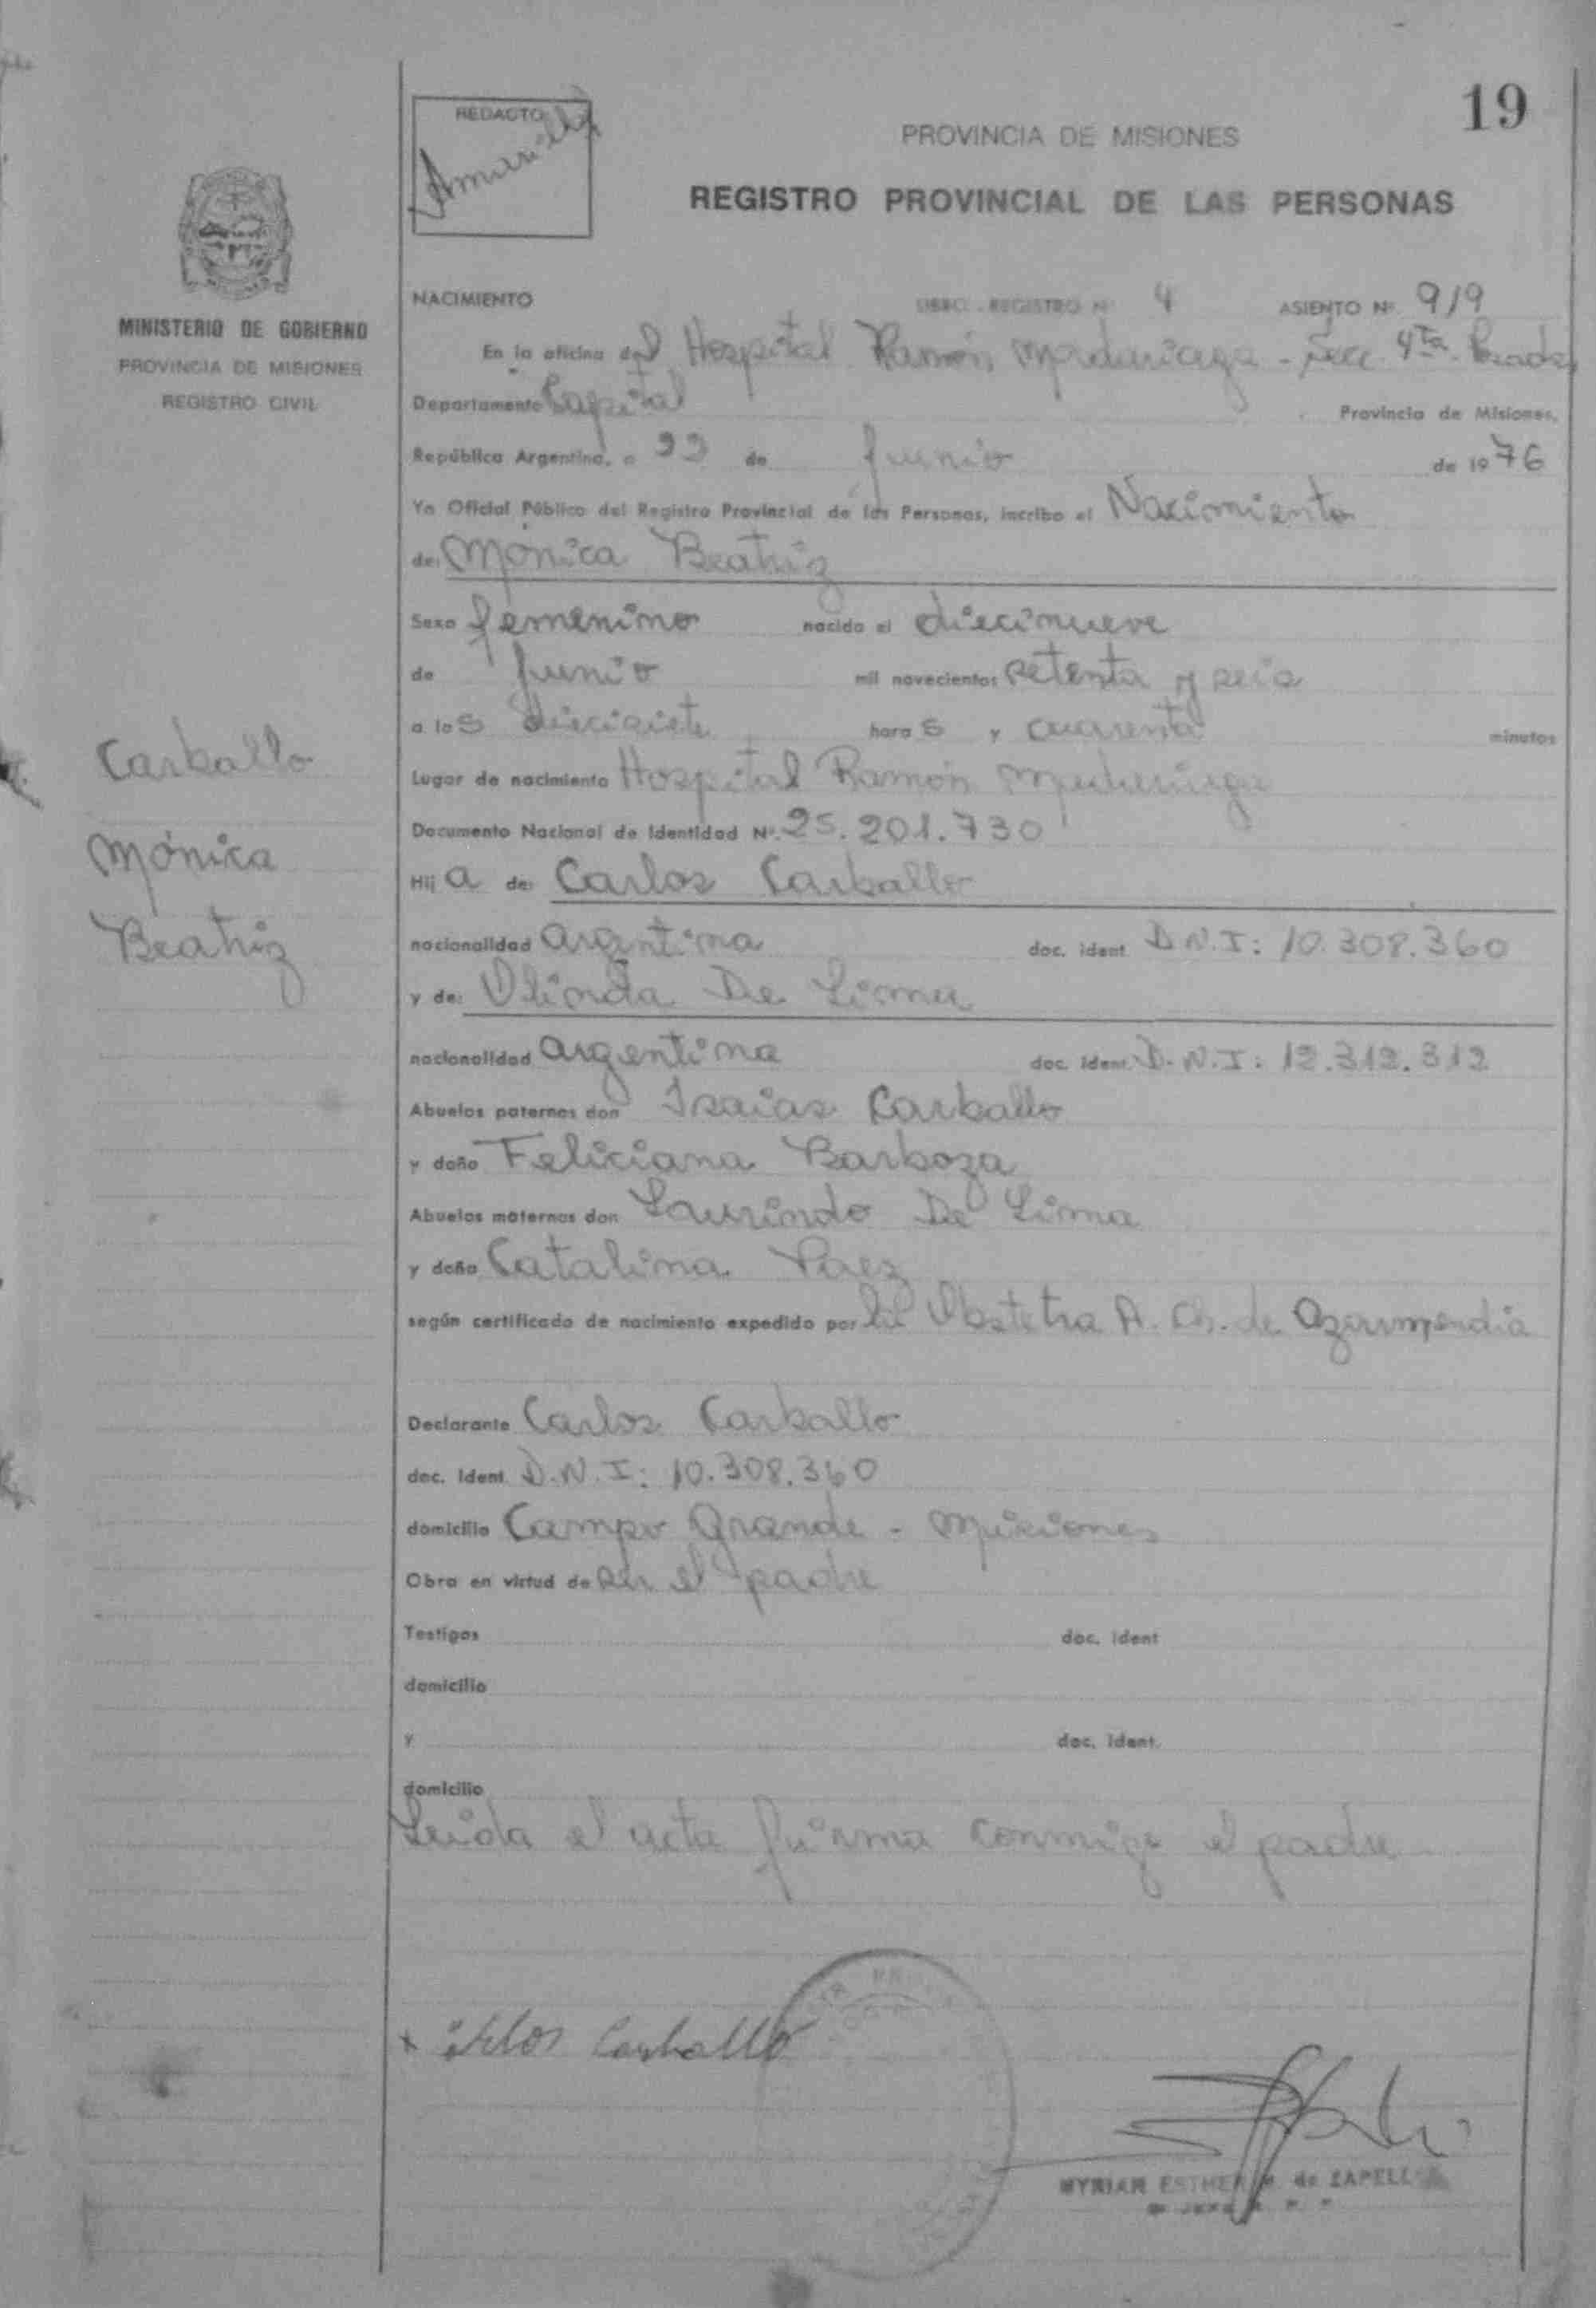 19
REDACTO
PROVINCIA DE MISIONES
REGISTRO PROVINCIAL DE LAS PERSONAS
MINISTERIO DE GOBIERNO
PROVINCIA DE MISIONES
REGISTRO CIVIL
NACIMIENTO LIBRO - REGISTRO Nº 4 ASIENTO Nº 919
En la oficina del Hospital Ramón Madariaga - Secc 4ta
Departamento Capital Provincia de Misiones,
República Argentina, a de Junio de 1976
Yo Oficial Público del Registro Provincial de las Personas, incribo el Nacimiento
de: Mónica Beatriz
Sexo femenino nacido el diecinueve
de Junio mil novecientos setenta y seis
a las diecisiete horas y cuarenta minutos
Lugar de nacimiento Hospital Ramón Madariaga
Documento Nacional de Identidad Nº 25.201.730
Hija de: Carlos Carballo
nacionalidad argentina doc. ident. D.N.I: 10.308.360
y de: Olinda De Lima
nacionalidad argentina doc. ident. D.N.I: 12.312.312
Abuelos paternos don Isaias Carballo
y doña Feliciana Barboza
Abuelos maternos don Laurindo De Lima
y doña Catalina Paez
según certificado de nacimiento expedido por la Obstetra A. Ch. de Azarmendia
Declarante Carlos Carballo
doc. ident. D.N.I: 10.308.360
domicilio Campo Grande - Misiones
Obra en virtud de ser el padre
Testigos doc. ident
domicilio
y doc. ident.
domicilio
Leida el acta firma conmigo el padre
Carballo
Mónica
Beatriz
Carballo
MYRIAM ESTHER de ZAPELL